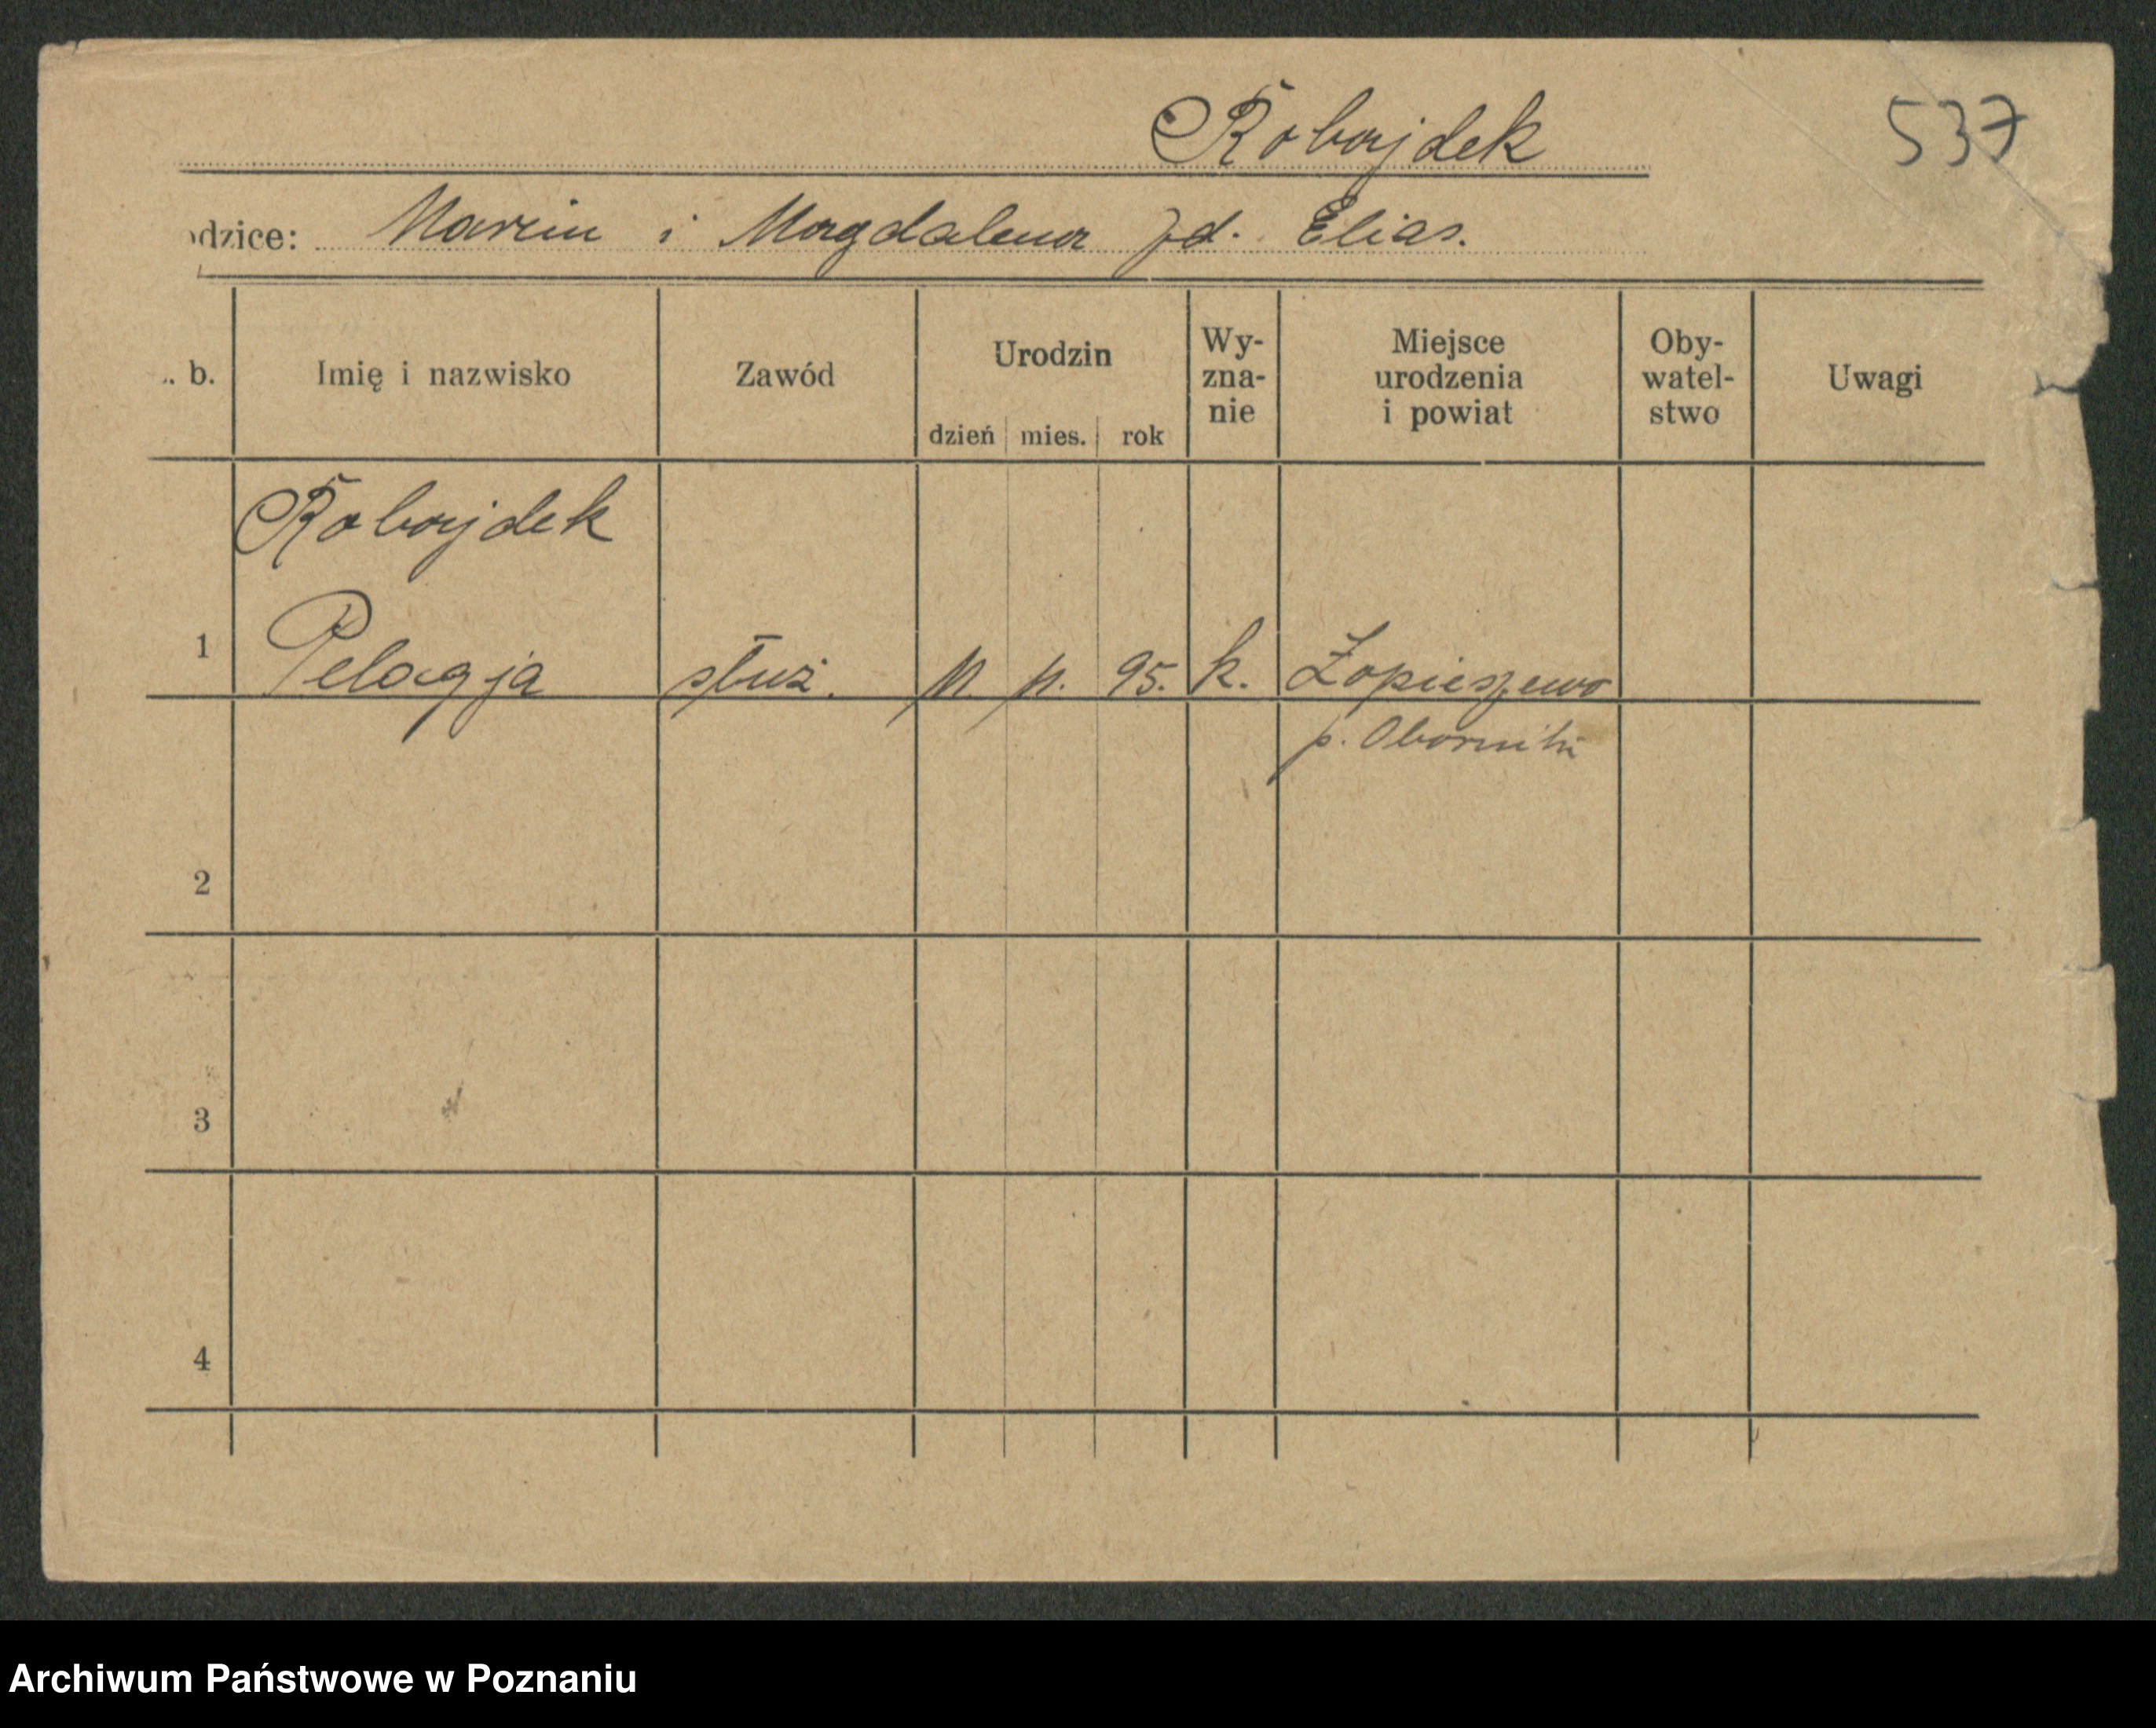 Robajdek 537
odzice: Marcin i Magdalena zd. Elias.
. b. Imię i nazwisko Zawód Urodzin dzień mies. rok Wy-zna-nie Miejsce urodzenia i powiat Oby-watel-stwo Uwagi
Robajdek
1 Pelagja służ. 11. 11. 95. k. Łopieszewo
p. Oborniki
2
3
4
Archiwum Państwowe w Poznaniu